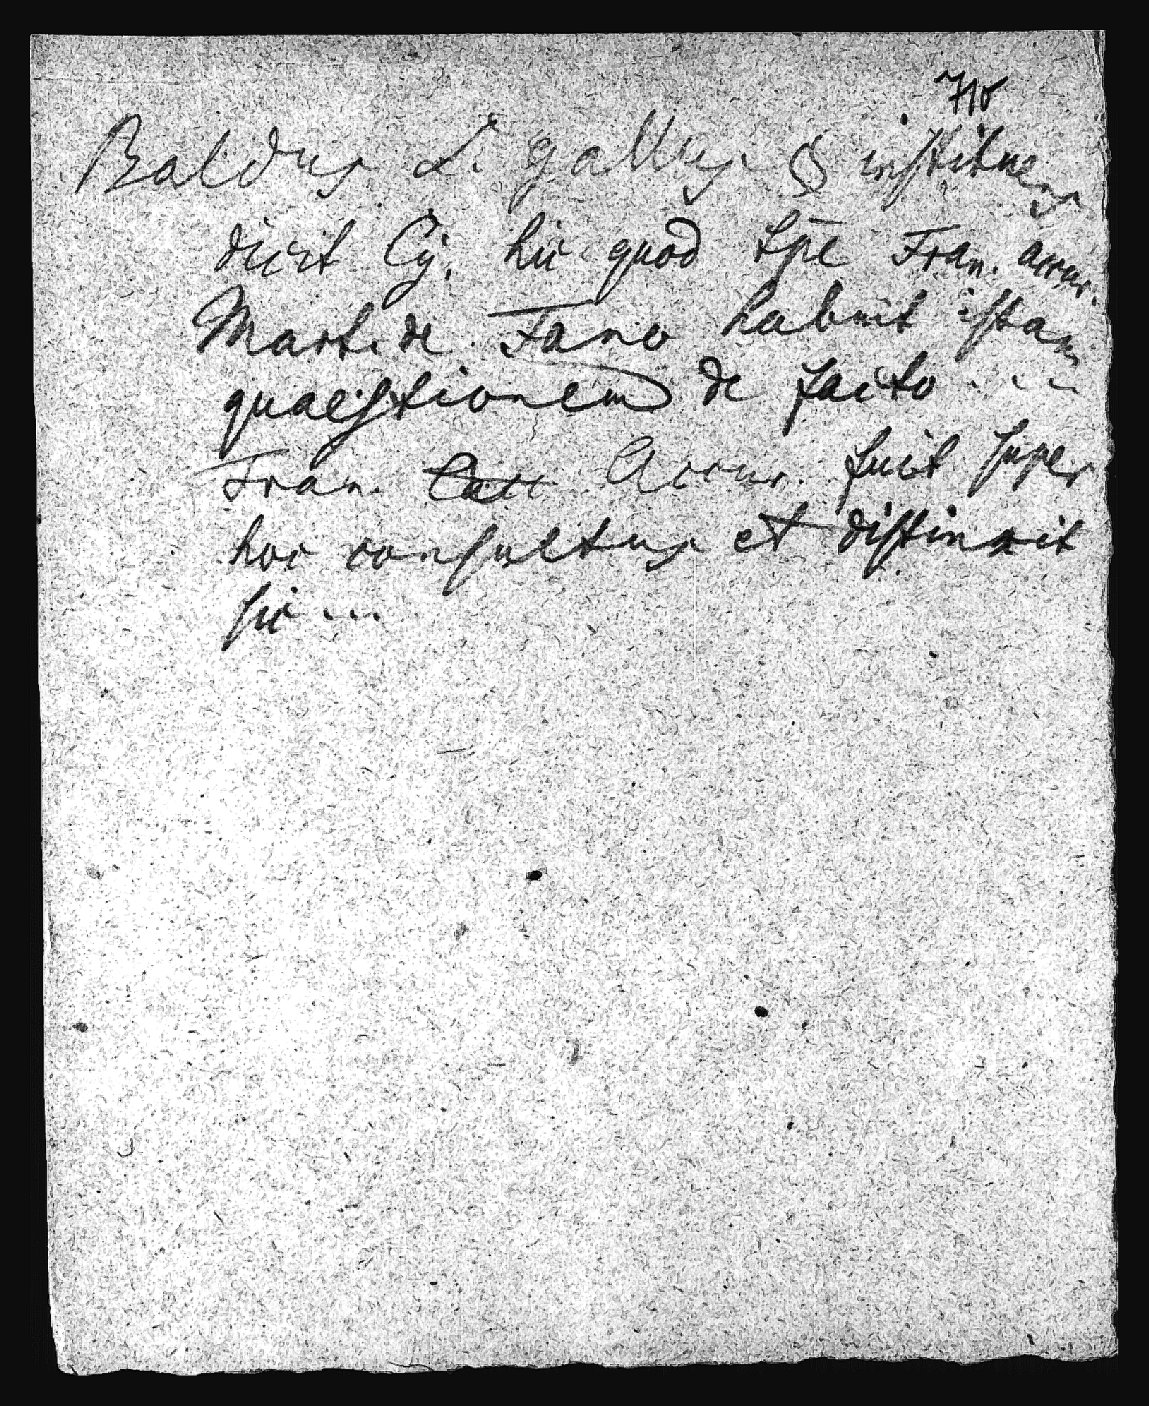 710
Baldus L. gallus § instituens
dicit Cy. hic quod tpe Fran. accur.
Mart. de Fano habuit istam
quaestionem de facto ...
Fran. Accur. fuit super
hoc consultus et distinxit
sic ...